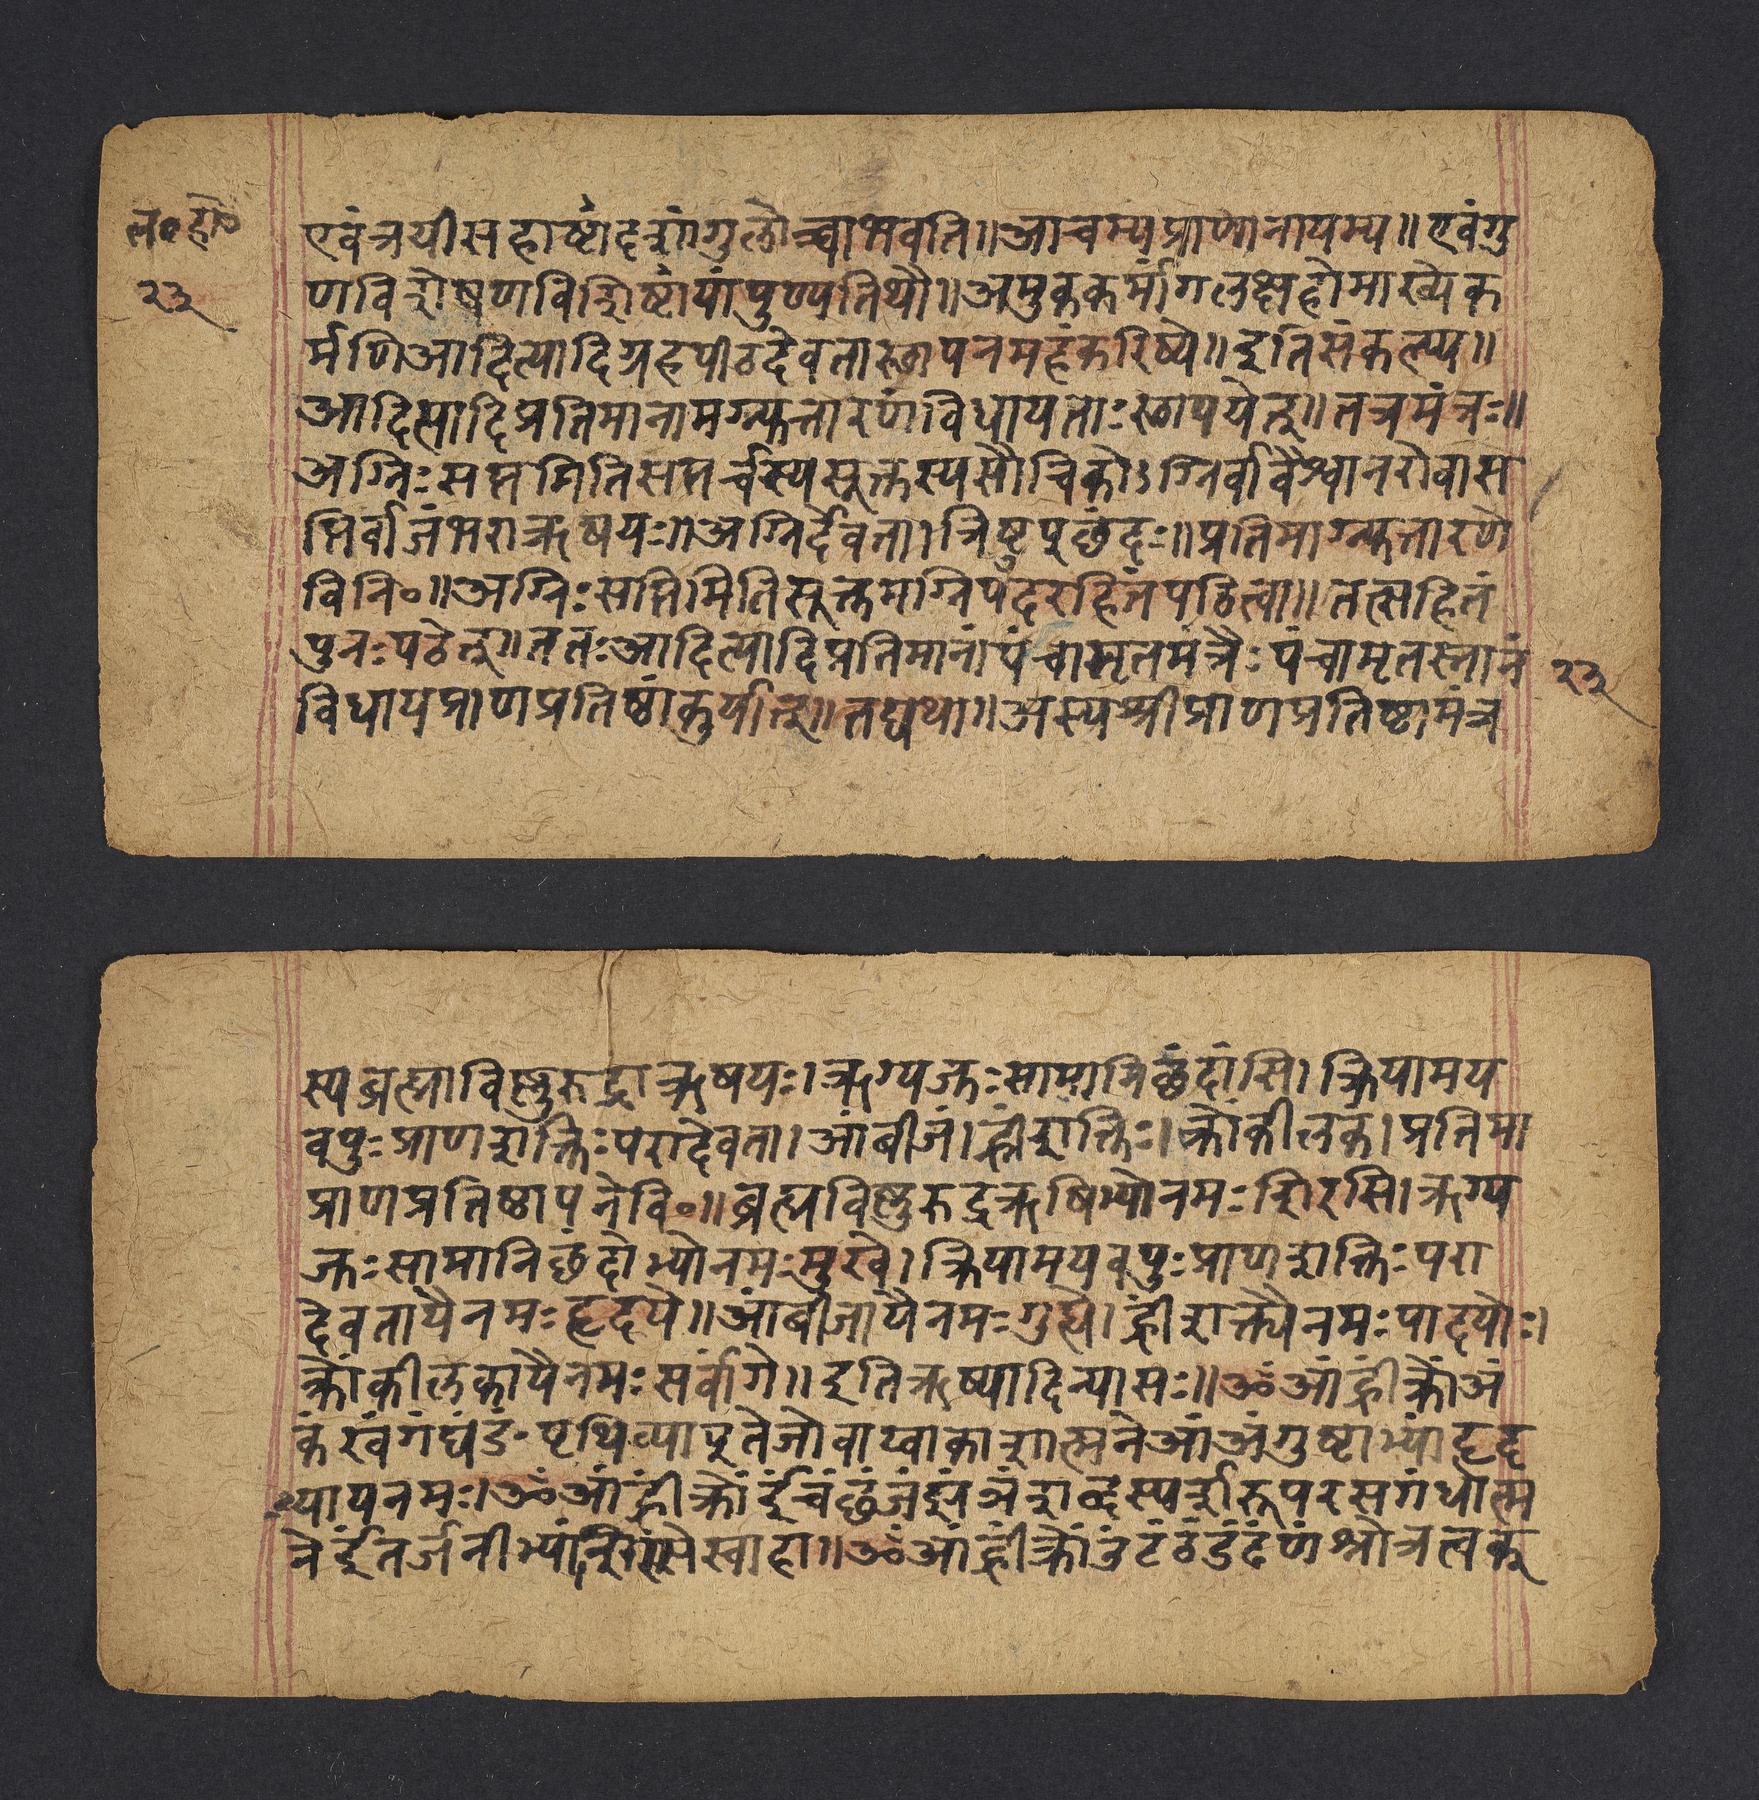 ल॰हो॰
२३
एवंत्रयीसहाष्टादशांगुलोच्चाभवति॥आचम्यप्राणानायम्य॥एवंगु
णविशेषणविशिष्टायांपुण्यतिथौ॥अमुककर्मांगलक्षहोमाख्येक
र्मणिआदित्यादिग्रहपीठदेवतास्थापनमहंकरिष्ये॥इतिसंकल्प्य॥
आदित्यादिप्रतिमानामग्न्युत्तारणंविधायताःस्थापयेत्॥तत्रमंत्रः॥
अग्निःसप्तमितिसप्तर्चस्यसूक्तस्यसौचिकोऽग्निर्वावैश्वानरोवास
प्तिर्वाजंभराऋषयः॥अग्निर्देवता।त्रिष्टुप्छंदः॥प्रतिमाग्न्युत्तारणे
विनि॰॥अग्निःसप्तिमितिसूक्तमग्निपदरहितंपठित्वा॥तत्सहितं
पुनःपठेत्॥ततःआदित्यादिप्रतिमानांपंचामृतमंत्रैःपंचामृतस्नानं
२३
विधायप्राणप्रतिष्ठांकुर्यात्॥तद्यथा॥अस्यश्रीप्राणप्रतिष्ठामंत्र
स्यब्रह्माविष्णुरुद्राऋषयः।ऋग्यजुःसामानिछंदांसि।क्रियामय
वपुःप्राणशक्तिःपरादेवता।आंबीजं।ह्रींशक्तिः।क्रोंकीलकं।प्रतिमा
प्राणप्रतिष्ठापनेवि॰॥ब्रह्मविष्णुरुद्रऋषिभ्योनमःशिरसि।ऋग्य
जुःसामानिछंदोभ्योनमःमुखे।क्रियामयवपुःप्राणशक्तिःपरा
देवतायैनमःहृदये॥आंबीजायैनमःगुह्ये।ह्रींशक्त्यैनमःपादयोः।
क्रोंकीलकायैनमःसर्वांगे॥इतिऋष्यादिन्यासः॥ॐआंह्रींक्रोंअं
कंखंगंघंङंपृथिव्यापुतेजोवाय्वाकाशात्मनेआंअंगुष्टाभ्यांहृद
यायनमः।ॐआंह्रींक्रोंइंचंछंजंझंञंशब्दस्पर्शरूपरसगंधात्म
नेईंतर्जनीभ्यांशिरसेस्वाहा॥ॐआंह्रींक्रोंउंटंठंडंढंणंश्रोत्रत्वक्